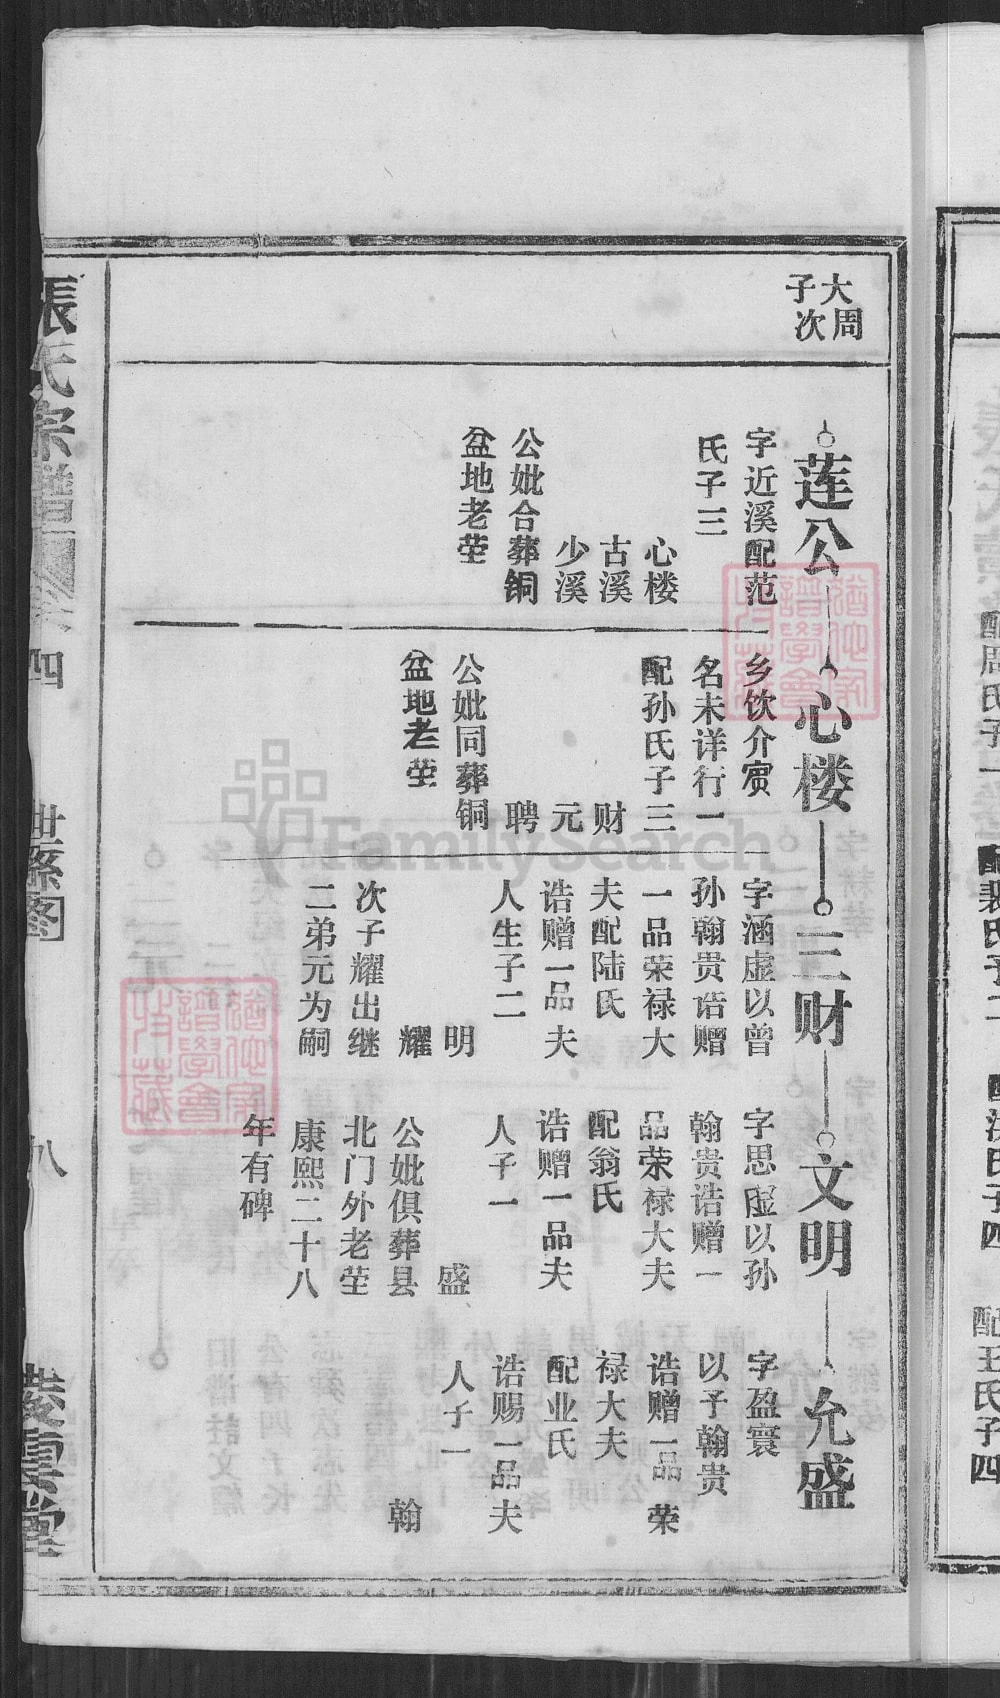 大周
子次
莲公
字近溪配范
氏子三
心楼
古溪
少溪
公妣合葬铜
盆地老茔
心楼
乡饮介宾
名未详行一
配孙氏子三
财
元
聘
公妣同葬铜
盆地老茔
三财
字涵虚以曾
孙翰贵诰赠
一品荣禄大
夫配陆氏
诰赠一品夫
人生子二
明
耀
次子耀出继
二弟元为嗣
文明
字思虚以孙
翰贵诰赠一
品荣禄大夫
配翁氏
诰赠一品夫
人子一
盛
公妣俱葬县
北门外老茔
康熙二十八
年有碑
允盛
字盈寰
以子翰贵
诰赠一品荣
禄大夫
配业氏
诰赐一品夫
人子一
翰
張氏宗譜
四
世系图
八
凌雲堂
配周氏子一
配裴氏子二
配汪氏子四
配王氏子四
FamilySearch